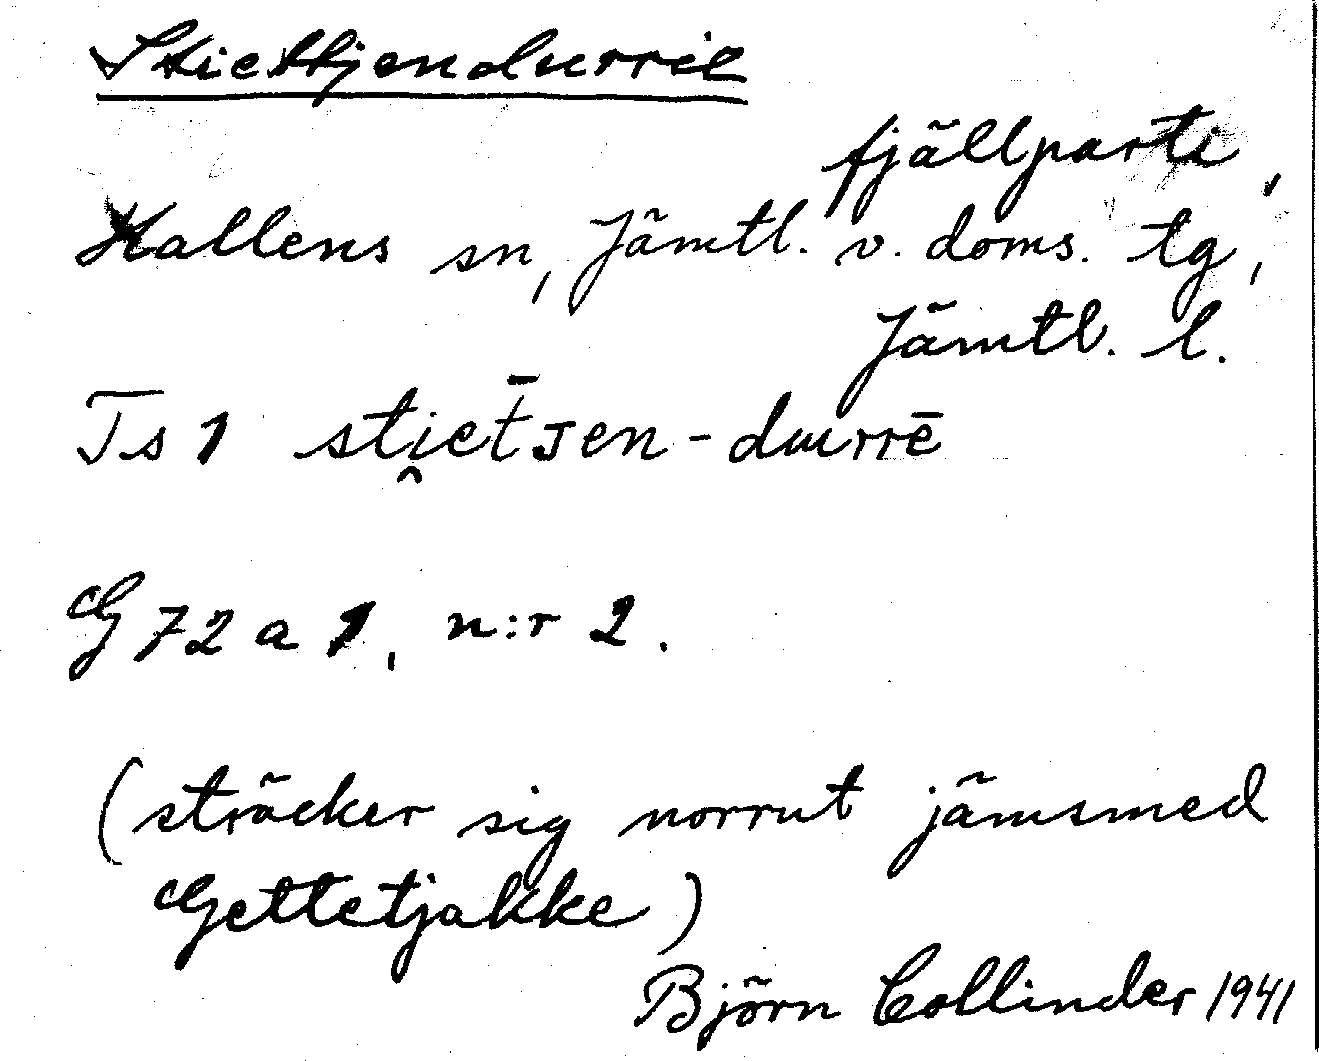 Stiettjendurrie
fjällparti,
Hallens sn, Jämtl. v. doms. tg,
Jämtl. l.
Ts 1 sti̭et̄ᴊen-durrē
G 72 a 1, n:r 2.
(sträcker sig norrut jämsmed
Gettetjakke)
Björn Collinder 1941